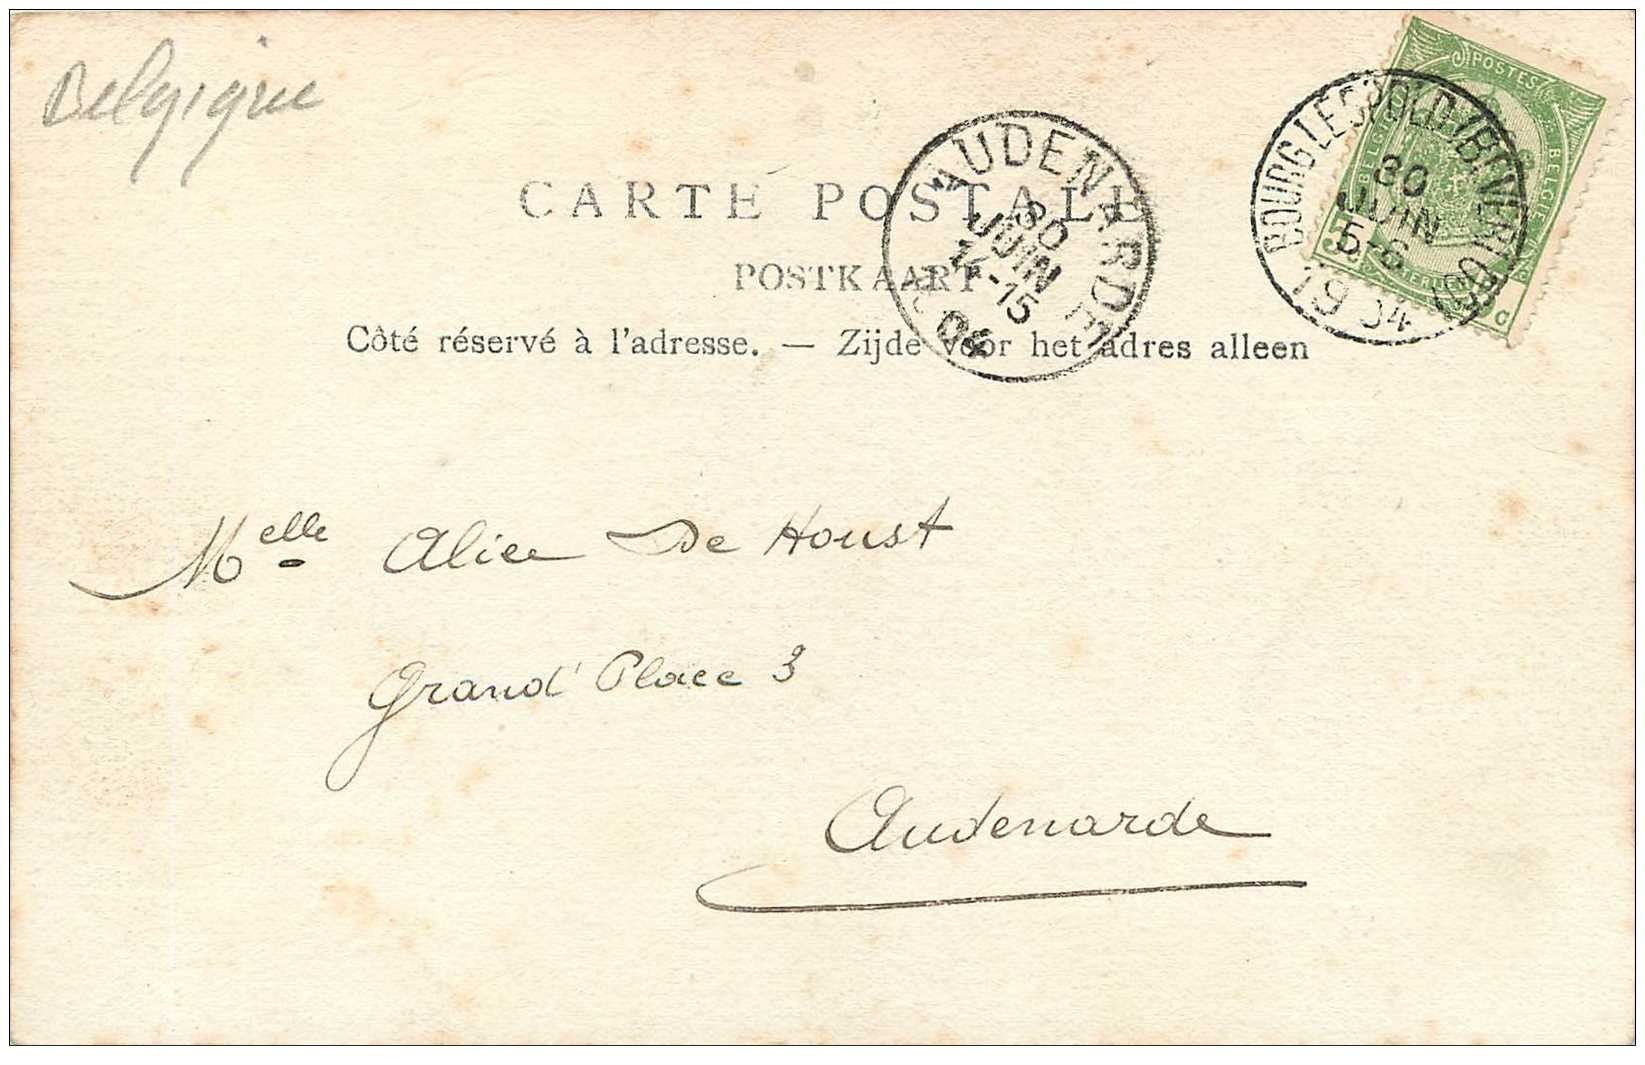 Belgique
CARTE POSTALE
POSTKAART
Côté réservé à l'adresse. — Zijde voor het adres alleen
AUDENARDE
30
JUIN
14-15
1904
POSTES
BELGIE
BOURG LEOPOLD (BEVERLOO)
30
JUIN
5-6
1904
Melle Alice De Houst
Grand' Place 3
Audenarde